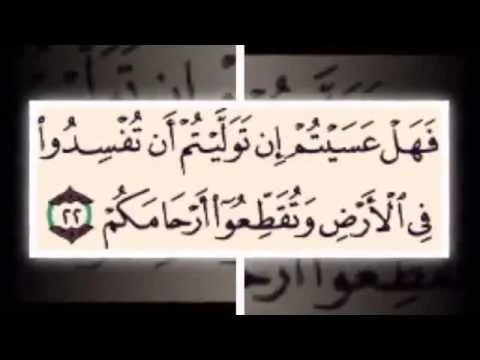 فَهَلْ عَسَيْتُمْ إِن تَوَلَّيْتُمْ أَن تُفْسِدُوا۟
فِى ٱلْأَرْضِ وَتُقَطِّعُوٓا۟ أَرْحَامَكُمْ ٢٢